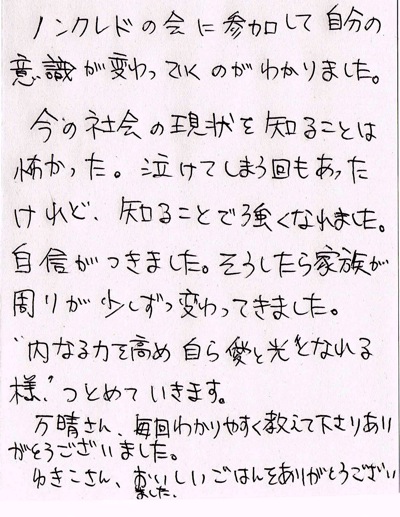 ノンクレドの会に参加して自分の
意識が変わっていくのがわかりました。
今の社会の現状を知ることは
怖かった。泣けてしまう回もあった
けれど、知ることで強くなれました。
自信がつきました。そうしたら家族が
周りが少しずつ変わってきました。
"内なる力を高め自ら愛と光となれる
様"つとめていきます。
万晴さん、毎回わかりやすく教えて下さりあり
がとうございました。
ゆきこさん、おいしいごはんをありがとうござい
ました。